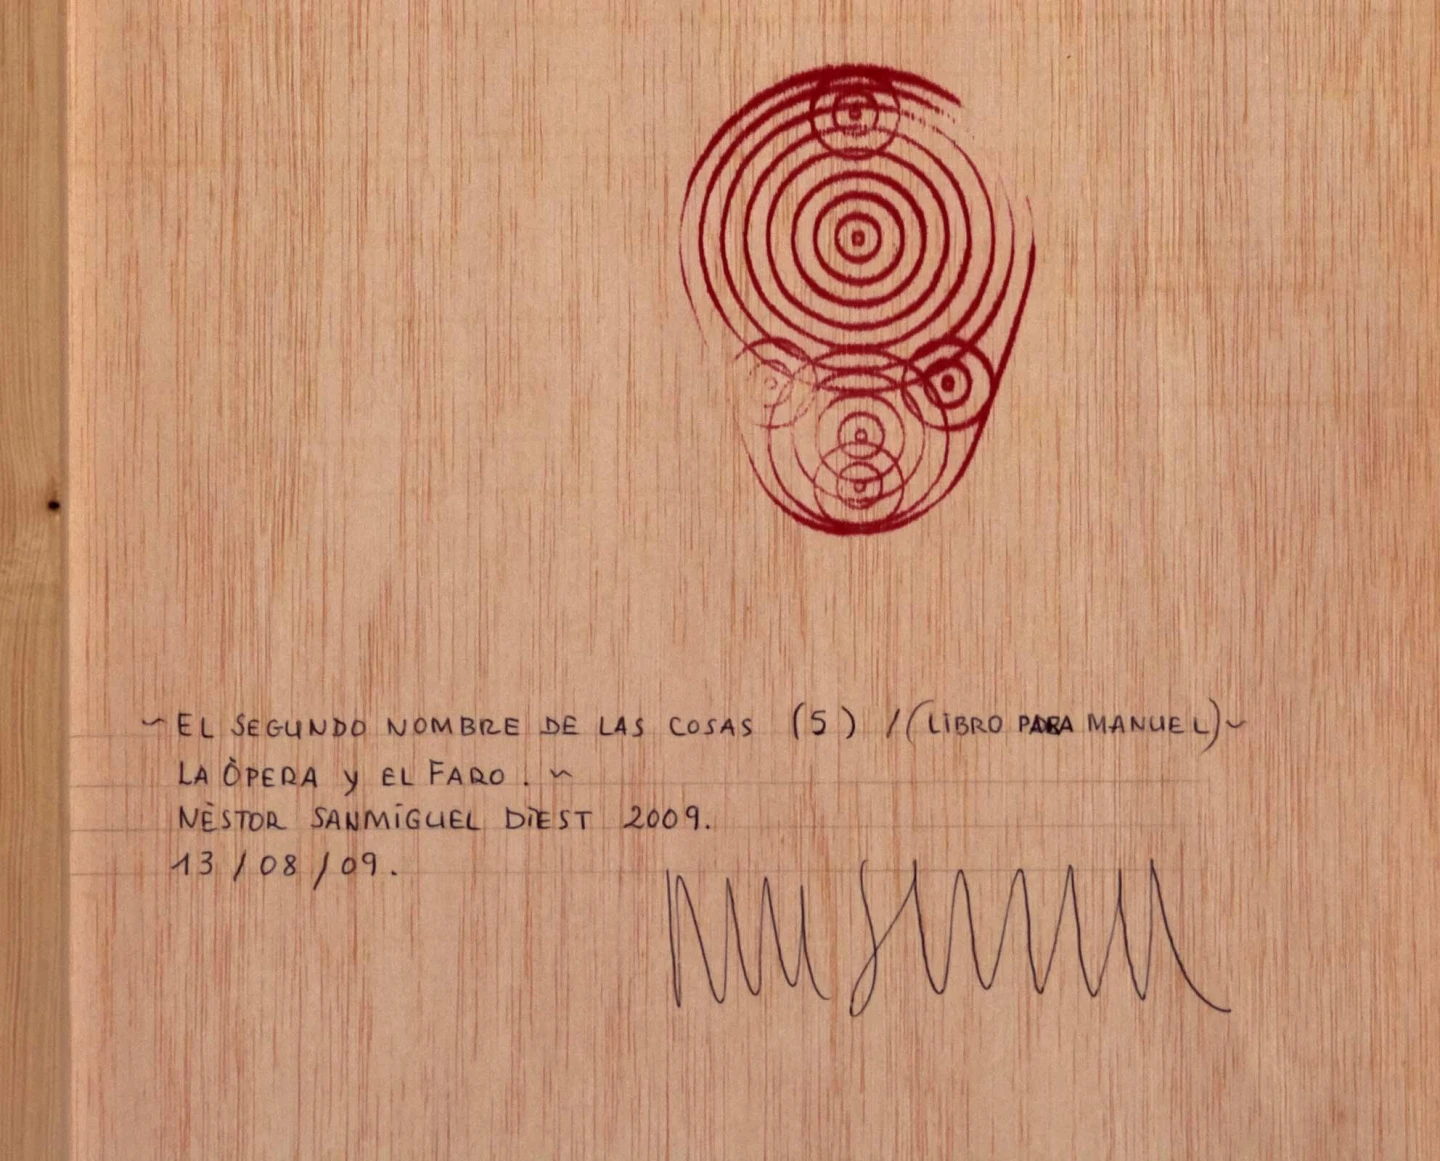 ~ EL SEGUNDO NOMBRE DE LAS COSAS (5) / (LIBRO PARA MANUEL) ~
LA ÒPERA y EL FARO. ~
NÈSTOR SANMIGUEL DIEST 2009.
13 / 08 / 09.